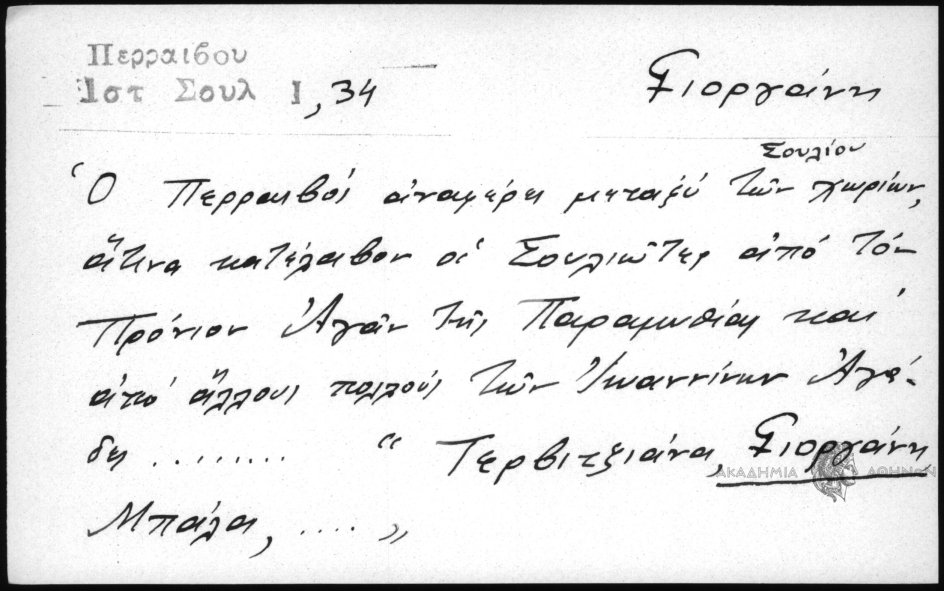 Περραιβου
Ιστ Σουλ Ι, 34
Γιοργάνη
Σουλίου
Ὁ Περραιβὸς ἀναφέρει μεταξὺ τῶν χωρίων,
ἅτινα κατέλαβον οἱ Σουλιῶται ἀπὸ τὸν
Πρόνιον Ἀγᾶν τῆς Παραμυθίας καὶ
ἀπὸ ἄλλους πολλοὺς τῶν Ἰωαννίνων Ἀγά-
δες ......... " Τερβιτζιάνα, Γιοργάνη
ΑΚΑΔΗΜΙΑ ΑΘΗΝΩΝ
Μπάλα, .... "